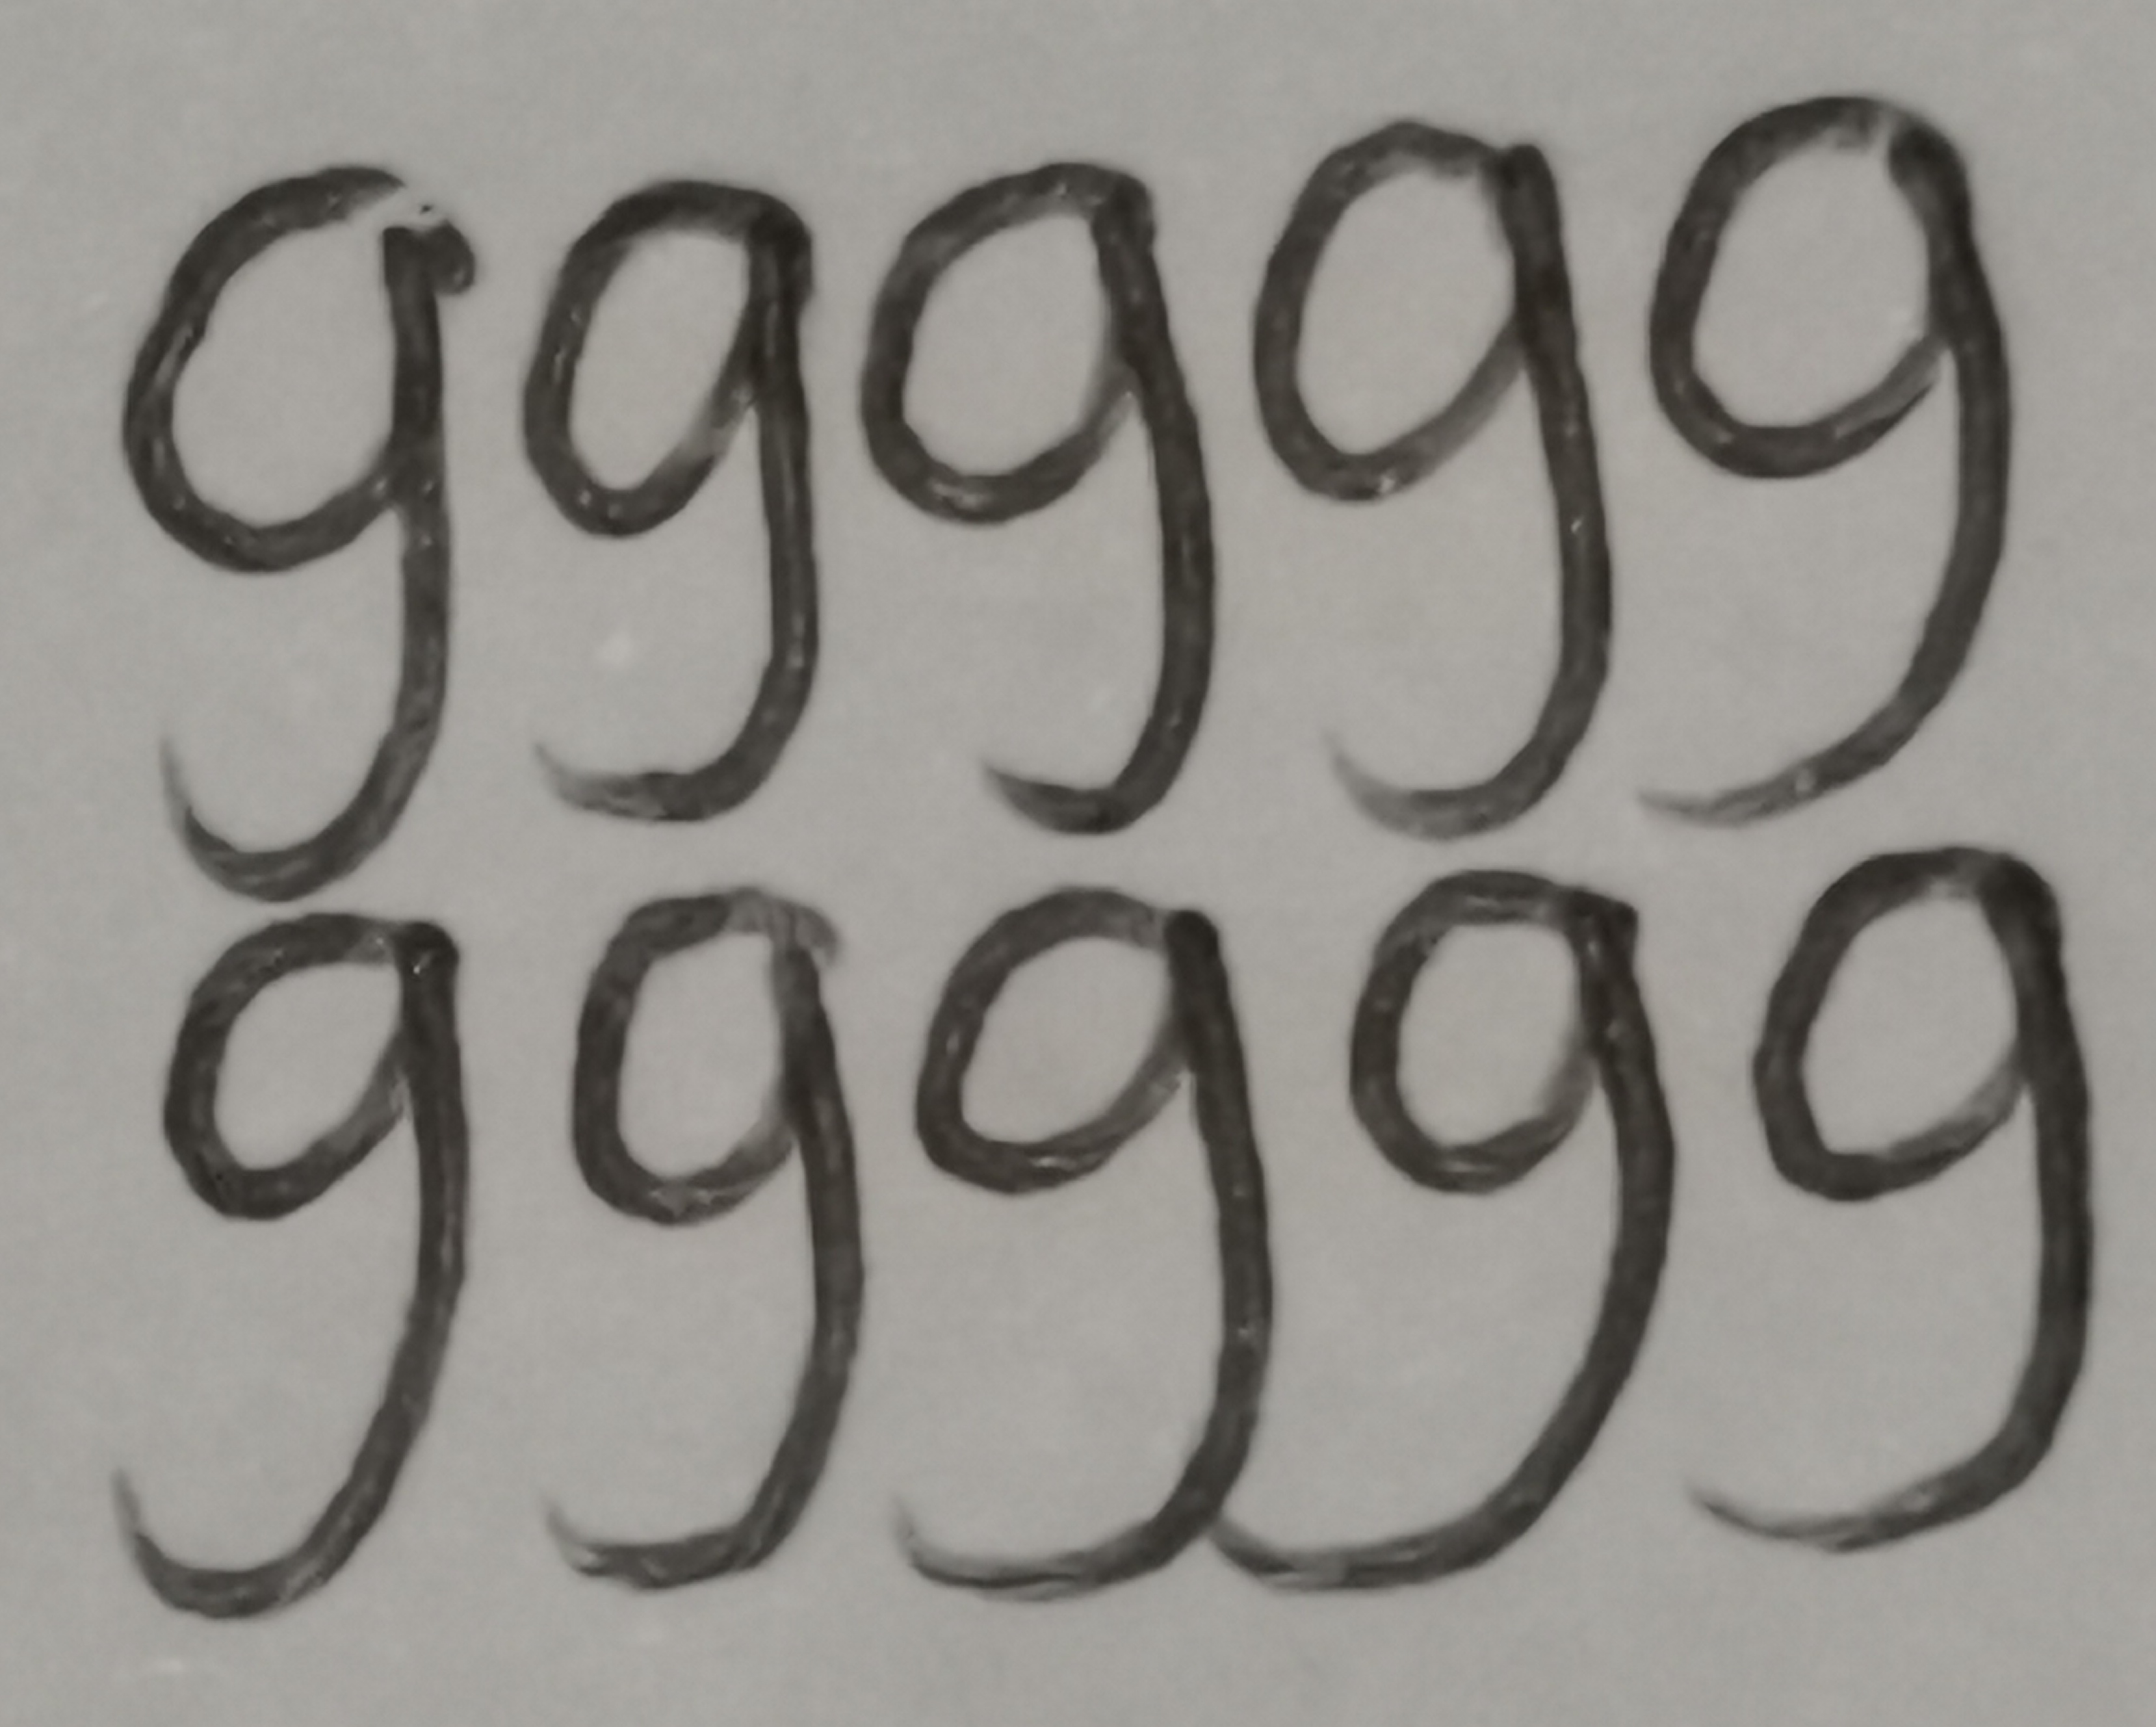 ggggg
ggggg